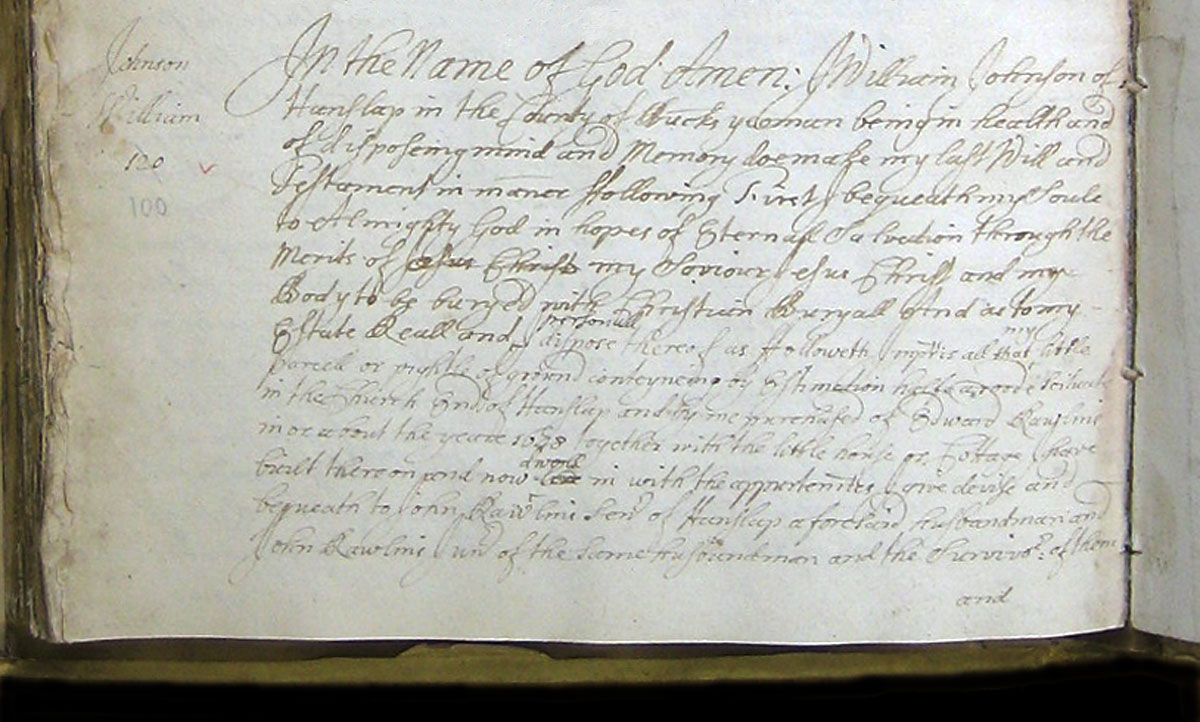 Johnson
William
120
100
In the Name of God Amen: I William Johnson of
Hanslap in the County of Bucks yeoman being in health and
of disposeing mind and Memory doe make my last Will and
Testament in maner ffollowing First I bequeath my Soule
to Almighty God in hopes of Eternall Salvation through the
Merits of Jesus Christ my Saviour Jesus Christ and my
Body to be buryed with Christian Buryall And as to my
Estate Reall and personall I dispose thereof as ffolloweth my
parcell or pightle of ground conteyneing by Estimation halfe a roode scituate
in the Church End of Hanslap and by me purchased of Edward Rawlins
in or about the yeare 1678 together with the little house or Cottage I have
built thereon and now dwell in with the appurtentes I give devise and
bequeath to John Rawlins Senr of Hanslap aforesaid husbandman and
John Rawlins Junr of the same husbandman and the Survivor: of them
and